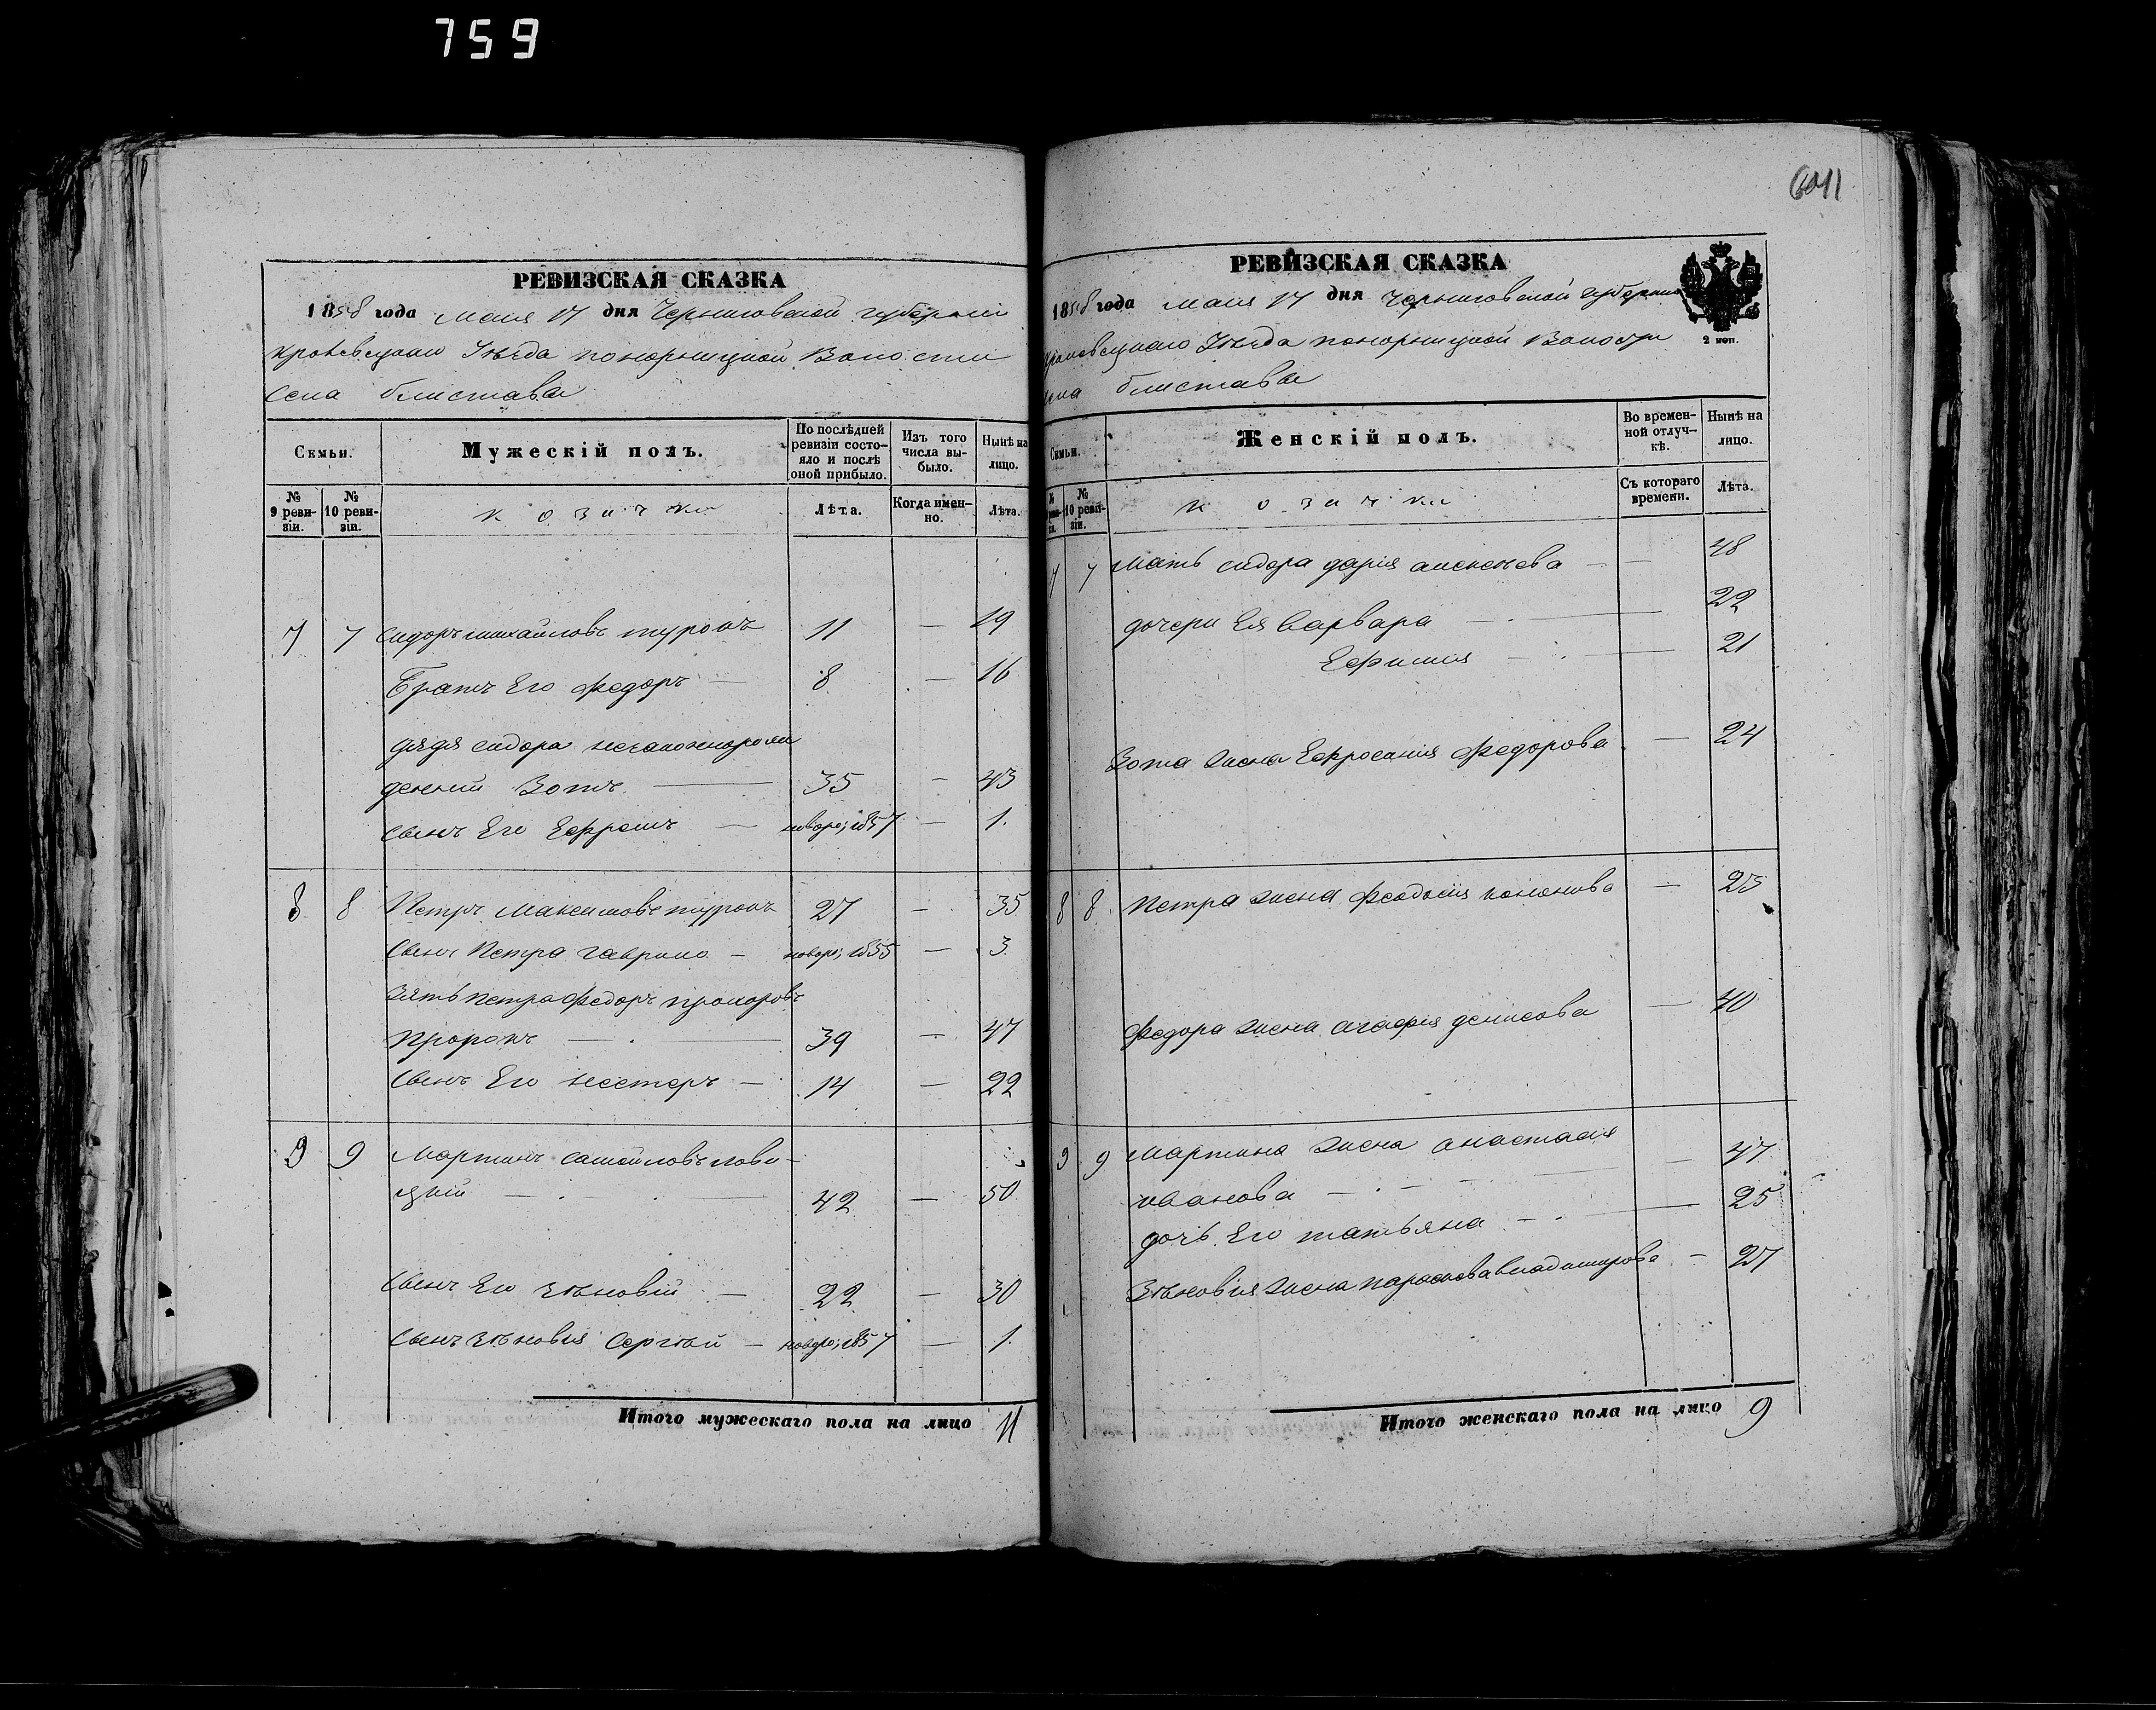 759
6041
РЕВИЗСКАЯ СКАЗКА
1858 года Мая 17 дня Черниговской губернiи
Кролевецкаго Уѣзда понорницкой Волости
Села блистава
Семьи.
Мужескiй полъ.
По послѣдней ревизiи состояло и послѣ оной прибыло.
Изъ того числа выбыло.
Нынѣ на лицо.
№ 9 ревизiи.
№ 10 ревизiи.
козачки
Лѣта.
Когда именно.
Лѣта.
7 7 Сидоръ михайловъ туронъ 11 — 19
Братъ Его Федоръ — 8 — 16
дядя сидора незаконнорож
денный Зотъ — 35 — 43
Сынъ Его Ефремъ — новоро; 1857 — 1.
8 8 Петръ Максимовъ туронъ 27 — 35
Сынъ Петра гаврило — новоро; 1855 — 3
Зять петра Федоръ прохоровъ
Проронъ — 39 — 47
Сынъ Его нестеръ — 14 — 22
9 9 Мартинъ самойловъ нови-
цкiй — 42 — 50
Сынъ Его Зѣновiй — 22 — 30
Сынъ Зѣновiя Сергѣй — новоро; 1857 — 1.
Итого мужескаго пола на лицо 11
РЕВИЗСКАЯ СКАЗКА
1858 года Мая 17 дня Черниговской губернiи
Кролевецкаго Уѣзда понорницкой Волости
Села блистава
2 коп.
Семьи.
Женскiй полъ.
Во временной отлучкѣ.
Нынѣ на лицо.
№ 10 ревизiи.
козачки
Съ котораго времени.
Лѣта.
7 7 Мать сидора дарiя алексеева — 48
дочери Ея Варвара — 22
Ефимия — 21
Зота жена Ефросинiя Федорова — 24
8 8 Петра жена Феодосiя кононова — 23
Федора жена агафiя денисова — 40
9 9 Мартина жена анастасiя
иванова — 47
дочь Его татьяна — 25
Зѣновiя жена парасковья владимирова — 27
Итого женскаго пола на лицо 9